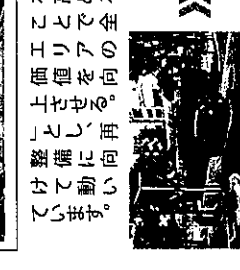 ことで全
エリアの
価値を向
上させる。
」とし、再
整備に向
けて動い
ています。